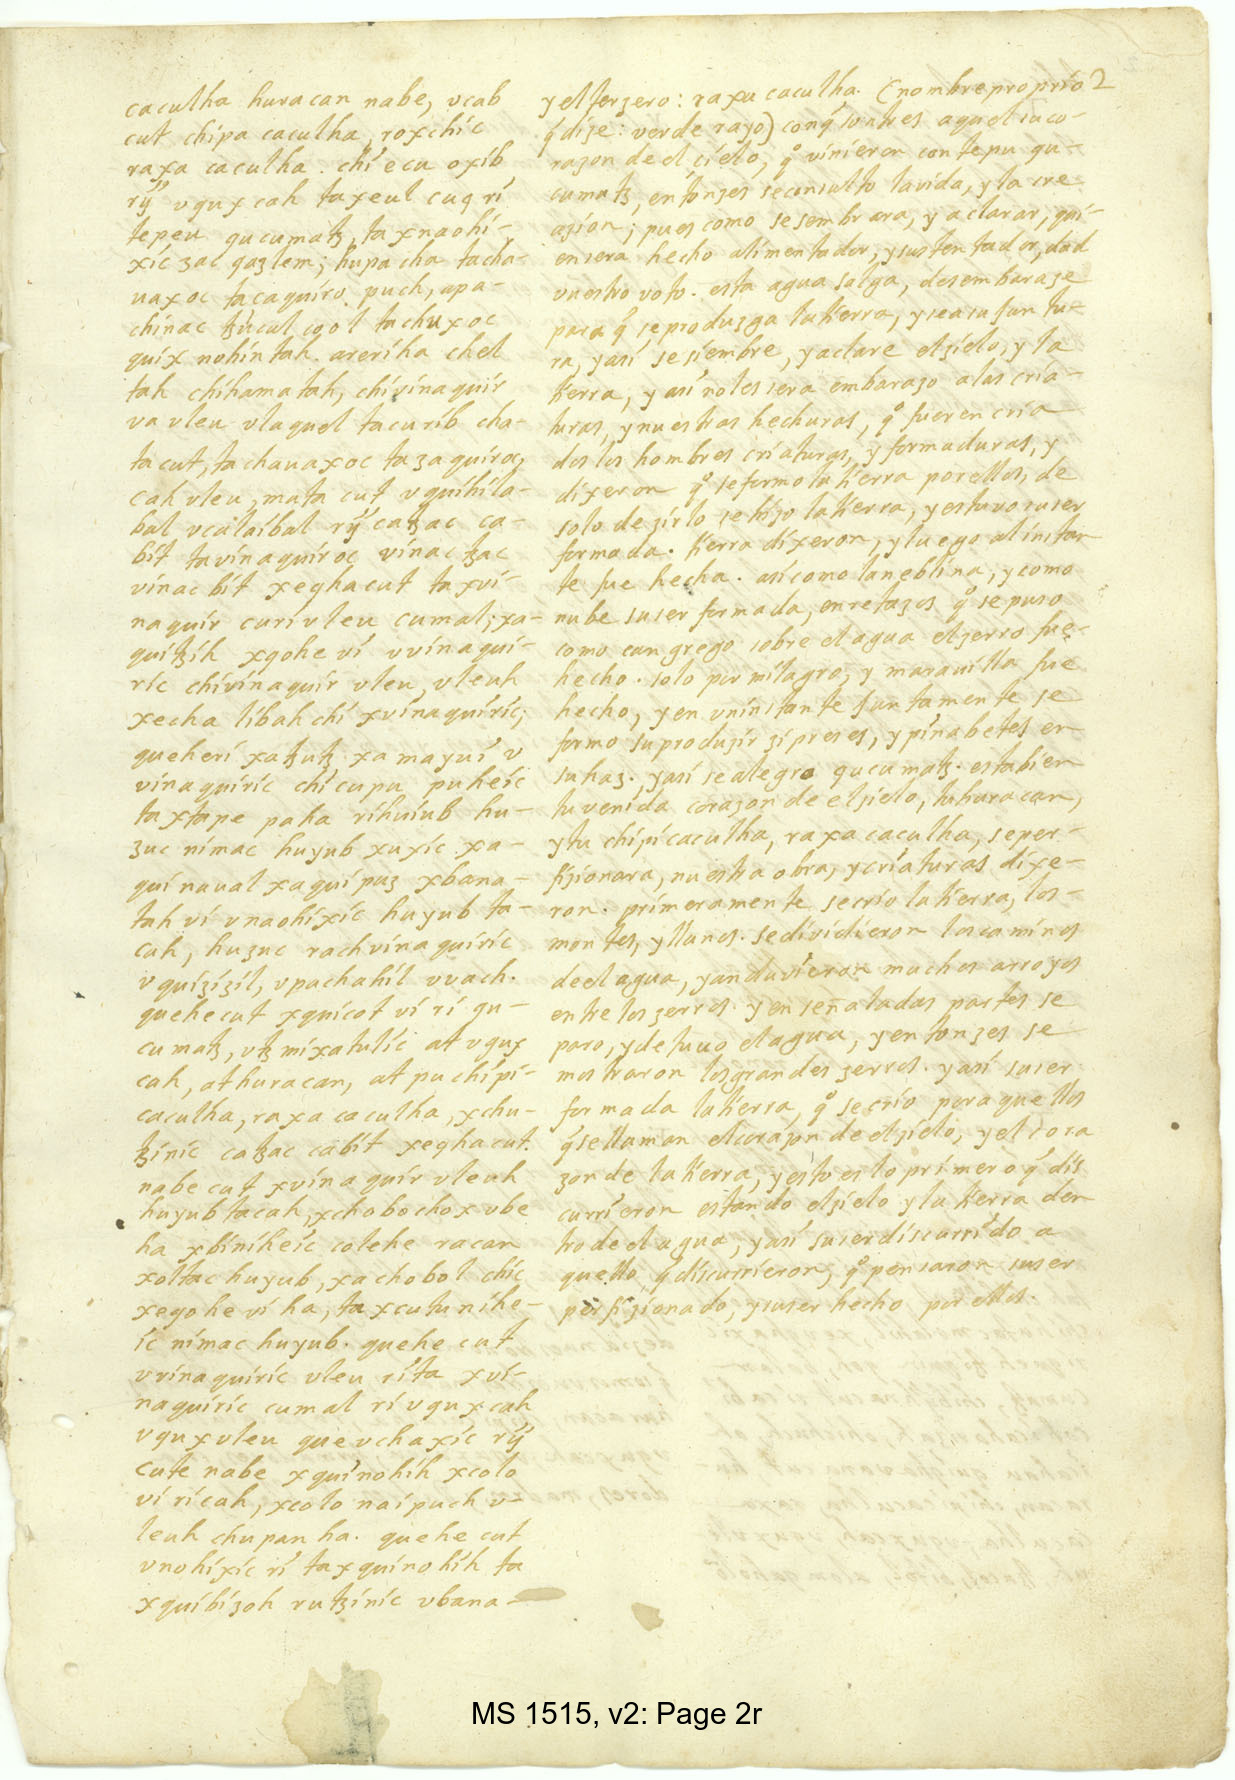 caculha huracan nabe, vcab
cut chipa caculha, roxchic
raxa caculha. chi ecu oxib
rÿ vquxcah taxeul cuq rí
tepeu qucumatz, taxnaohí-
xíc zac qazlem; hupacha tacha-
uaxoc tacaquíro puch, apa-
chínac tzucul cool tachuxoc
quíx nohíntah. areríha chel
tah chíhamatah, chívínaquír
va vleu vlaquel tacuríb cha-
tacut, tachauaxoc tazaquíroc,
cah vleu, mata cut vquíhíla-
bal vcalaíbal rÿ catzac ca-
bít tavínaquíroc vínac tzac
vínac bít xeghacut taxví-
naquír curívleu cumal; xa-
quítzíh xqohe ví vvínaquí-
ríc chívínaquír vleu, vleuh
xecha líbahchí xvínaquíríc;
queherí xatzutz xamayuí v
vínaquíríc chícupu puheíc
taxtape paha ríhuíub hu-
zuc nímac huyub xuxíc xa-
quí naual xaquí puz xbana-
tah ví vnaohíxíc huyub ta-
cah, huzuc rachvínaquíríc
vquízízíl, vpachahíl vvach.
quehecut xquícot ví rí qu-
cumatz, vtz míxatulíc at vqux
cah, at huracan, at pu chípí-
caculha, raxa caculha, xchu-
tzíníc catzac cabít xeghacut.
nabe cut xvínaquír vleuh
huyub tacah, xchobochox vbe
ha xbíníheíc colehe racan
xoltac huyub, xachobol chíc
xeqohe ví ha, taxcutuníhe-
íc nímac huyub. quehe cut
vvínaquíríc vleu ríta xví-
naquíríc cumal rí vquxcah
vquxvleu quevchaxíc rÿ
cute nabe xquínohíh xcolo
ví rícah, xcolo naípuch v-
leuh chupan ha. quehe cut
vnohíxíc rí taxquínohíh ta
xquíbízoh rutzíníc vbana-
y el terzero: raxa caculha. (nombre proprio 2
q̃ dize: verde rayo) conq̃ son tres aquel su co-
razon de el cielo, q̊ vinieron con tepu qu-
cumatz, entonzes se consulto la vida, y la cre
azion; pues como se sembrara, y aclarar, qui-
en sera hecho alimentador, y sustentador, dad
vuestro voto. esta agua salga, desembaraze
para q̃ se produzga la tierra, y sea su juntu-
ra, y así se siembre, y aclare el zielo, y la
tierra, y así no les sera embarazo a las cria-
turas, y nuestras hechuras, q̊ fueren cria
dos los hombres criaturas, y formaduras, y
dixeron q̊ se formo la tierra por ellos, de
solo dezirlo se hizo la tierra, y estuvo su ser
formada. tierra dixeron, y luego al instan
te fue hecha. así como la neblina, y como
nube su ser formada, en retazos q̊ se puso
como cangrego sobre el agua el zerro fue
hecho. solo por milagro, y marauilla fue
hecho, y en vn instante juntamente se
formo su produzir zipreses, y pinabetes en
su haz. y así se alegro qucumatz. esta bien
tu venida corazon de el zielo, tu huracan,
y tu chipicaculha, raxa caculha, se per-
fizionara, nuestra obra, y criaturas dixe-
ron. primeramente se crio la tierra, los
montes, y llanos. se dividieron los caminos
de el agua, y anduvieron muchos arroyos
entre los zerros. y en señaladas partes se
paro, y detuuo el agua, y entonzes se
mostraron los grandes zerros. y así su ser
formada la tierra, q̊ se crio por aquellos
q̃ se llaman el corazon de el zielo, y el cora
zon de la tierra, y esto es lo primero q̃ dis
currieron estando el zielo y la tierra den
tro de el agua, y así su ser discurrido a
quello q̃ discurrieron, q̊ pensaron su ser
perfizionado, y su ser hecho por ellos.
MS 1515, v2: Page 2r